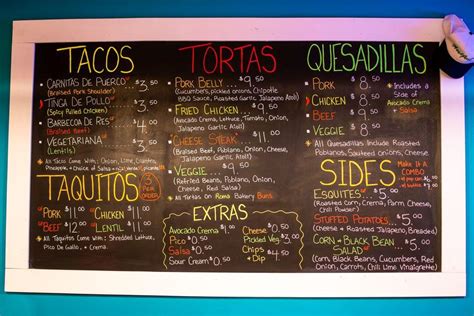 TACOS
CARNITAS DE PUERCO $3.50
(Braised Pork Shoulder)
TINGA DE POLLO $3.50
(Spicy Pulled Chicken)
BARBECOA DE RES $4.00
(Braised Beef)
VEGETARIANA $3.50
(Lentil)
All Tacos Come With: Onion, Lime, Cilantro,
Pineapple, Choice of Salsa
TAQUITOS
3 PER ORDER
PORK $11.00 CHICKEN $11.00
BEEF $12.00 LENTIL $11.00
All Taquitos Come With: Shredded Lettuce,
Pico De Gallo, Crema
TORTAS
PORK BELLY... $9.50
(Cucumbers, pickled onions, Chipotle
BBQ Sauce, Roasted Garlic Jalapeno Aioli)
FRIED CHICKEN $9.50
(Cheese, Crema, Tomato, Onion,
Jalapeno, Roasted Garlic Aioli)
CHEESE STEAK $11.50
(Beef, Poblano, Onion, Cheese,
Jalapeno Garlic Aioli)
VEGGIE $9.50
(Refried Beans, Poblano, Onion,
Cheese, Red Salsa)
All Tortas On Roma Bakery Buns
EXTRAS
Avocado Crema $1.00
Pico $0.50
Salsa
Sour Cream $0.50
Cheese $0.50
Pickled Veg $3.00
Chips $4.50
+ Dip
QUESADILLAS
PORK $8.50
CHICKEN $8.50
BEEF $9.50
VEGGIE $8.50
Includes a
Side of
Avocado Crema
+ Salsa
All Quesadillas Include Roasted
Poblanos, Sauteed Onions, Cheese
SIDES
Make It A
COMBO
ESQUITES... $5.00
(Roasted Corn, Crema, Parm Cheese,
Chili Powder, Cilantro)
STUFFED POTATOES... $5.00
(Cheese & Roasted Jalapeno, Breaded)
CORN + BLACK BEAN
SALAD $5.00
(Corn, Black Beans, Cucumber, Red
Onion, Carrots, Chili Lime Vinaigrette)